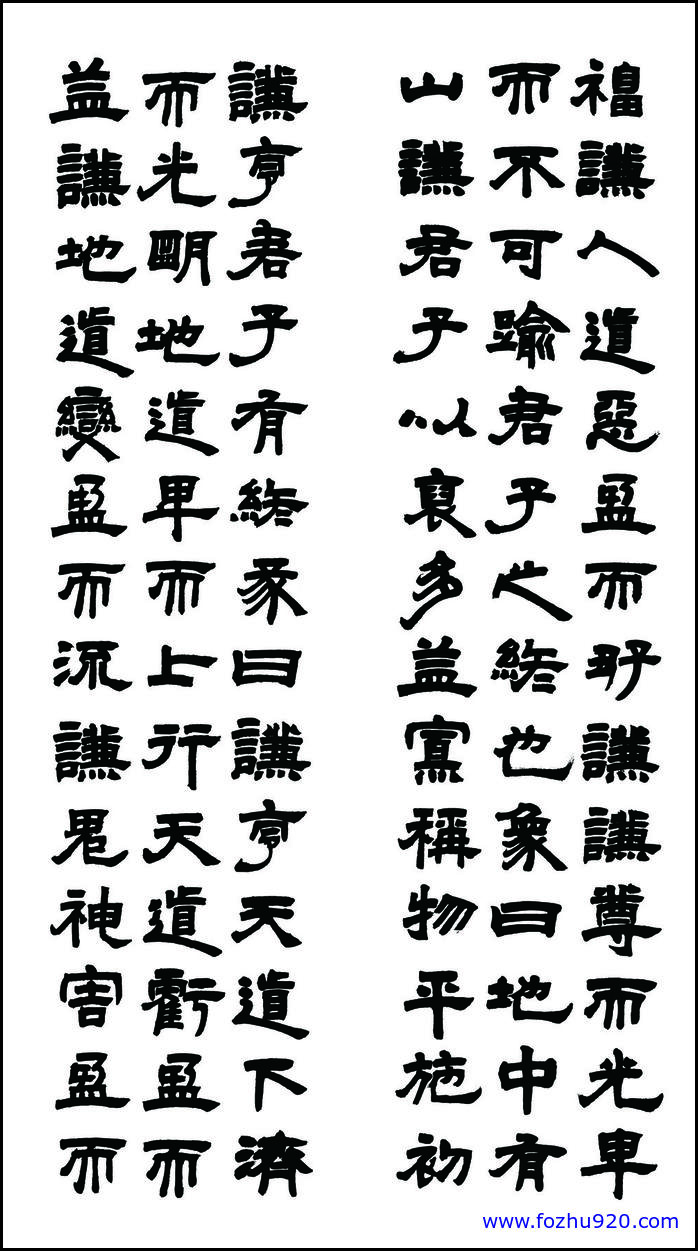 謙亨君子有終彖曰謙亨天道下濟
而光明地道卑而上行天道虧盈而
益謙地道變盈而流謙鬼神害盈而
福謙人道惡盈而好謙謙尊而光卑
而不可踰君子之終也象曰地中有
山謙君子以裒多益寡稱物平施初
www.fozhu920.com